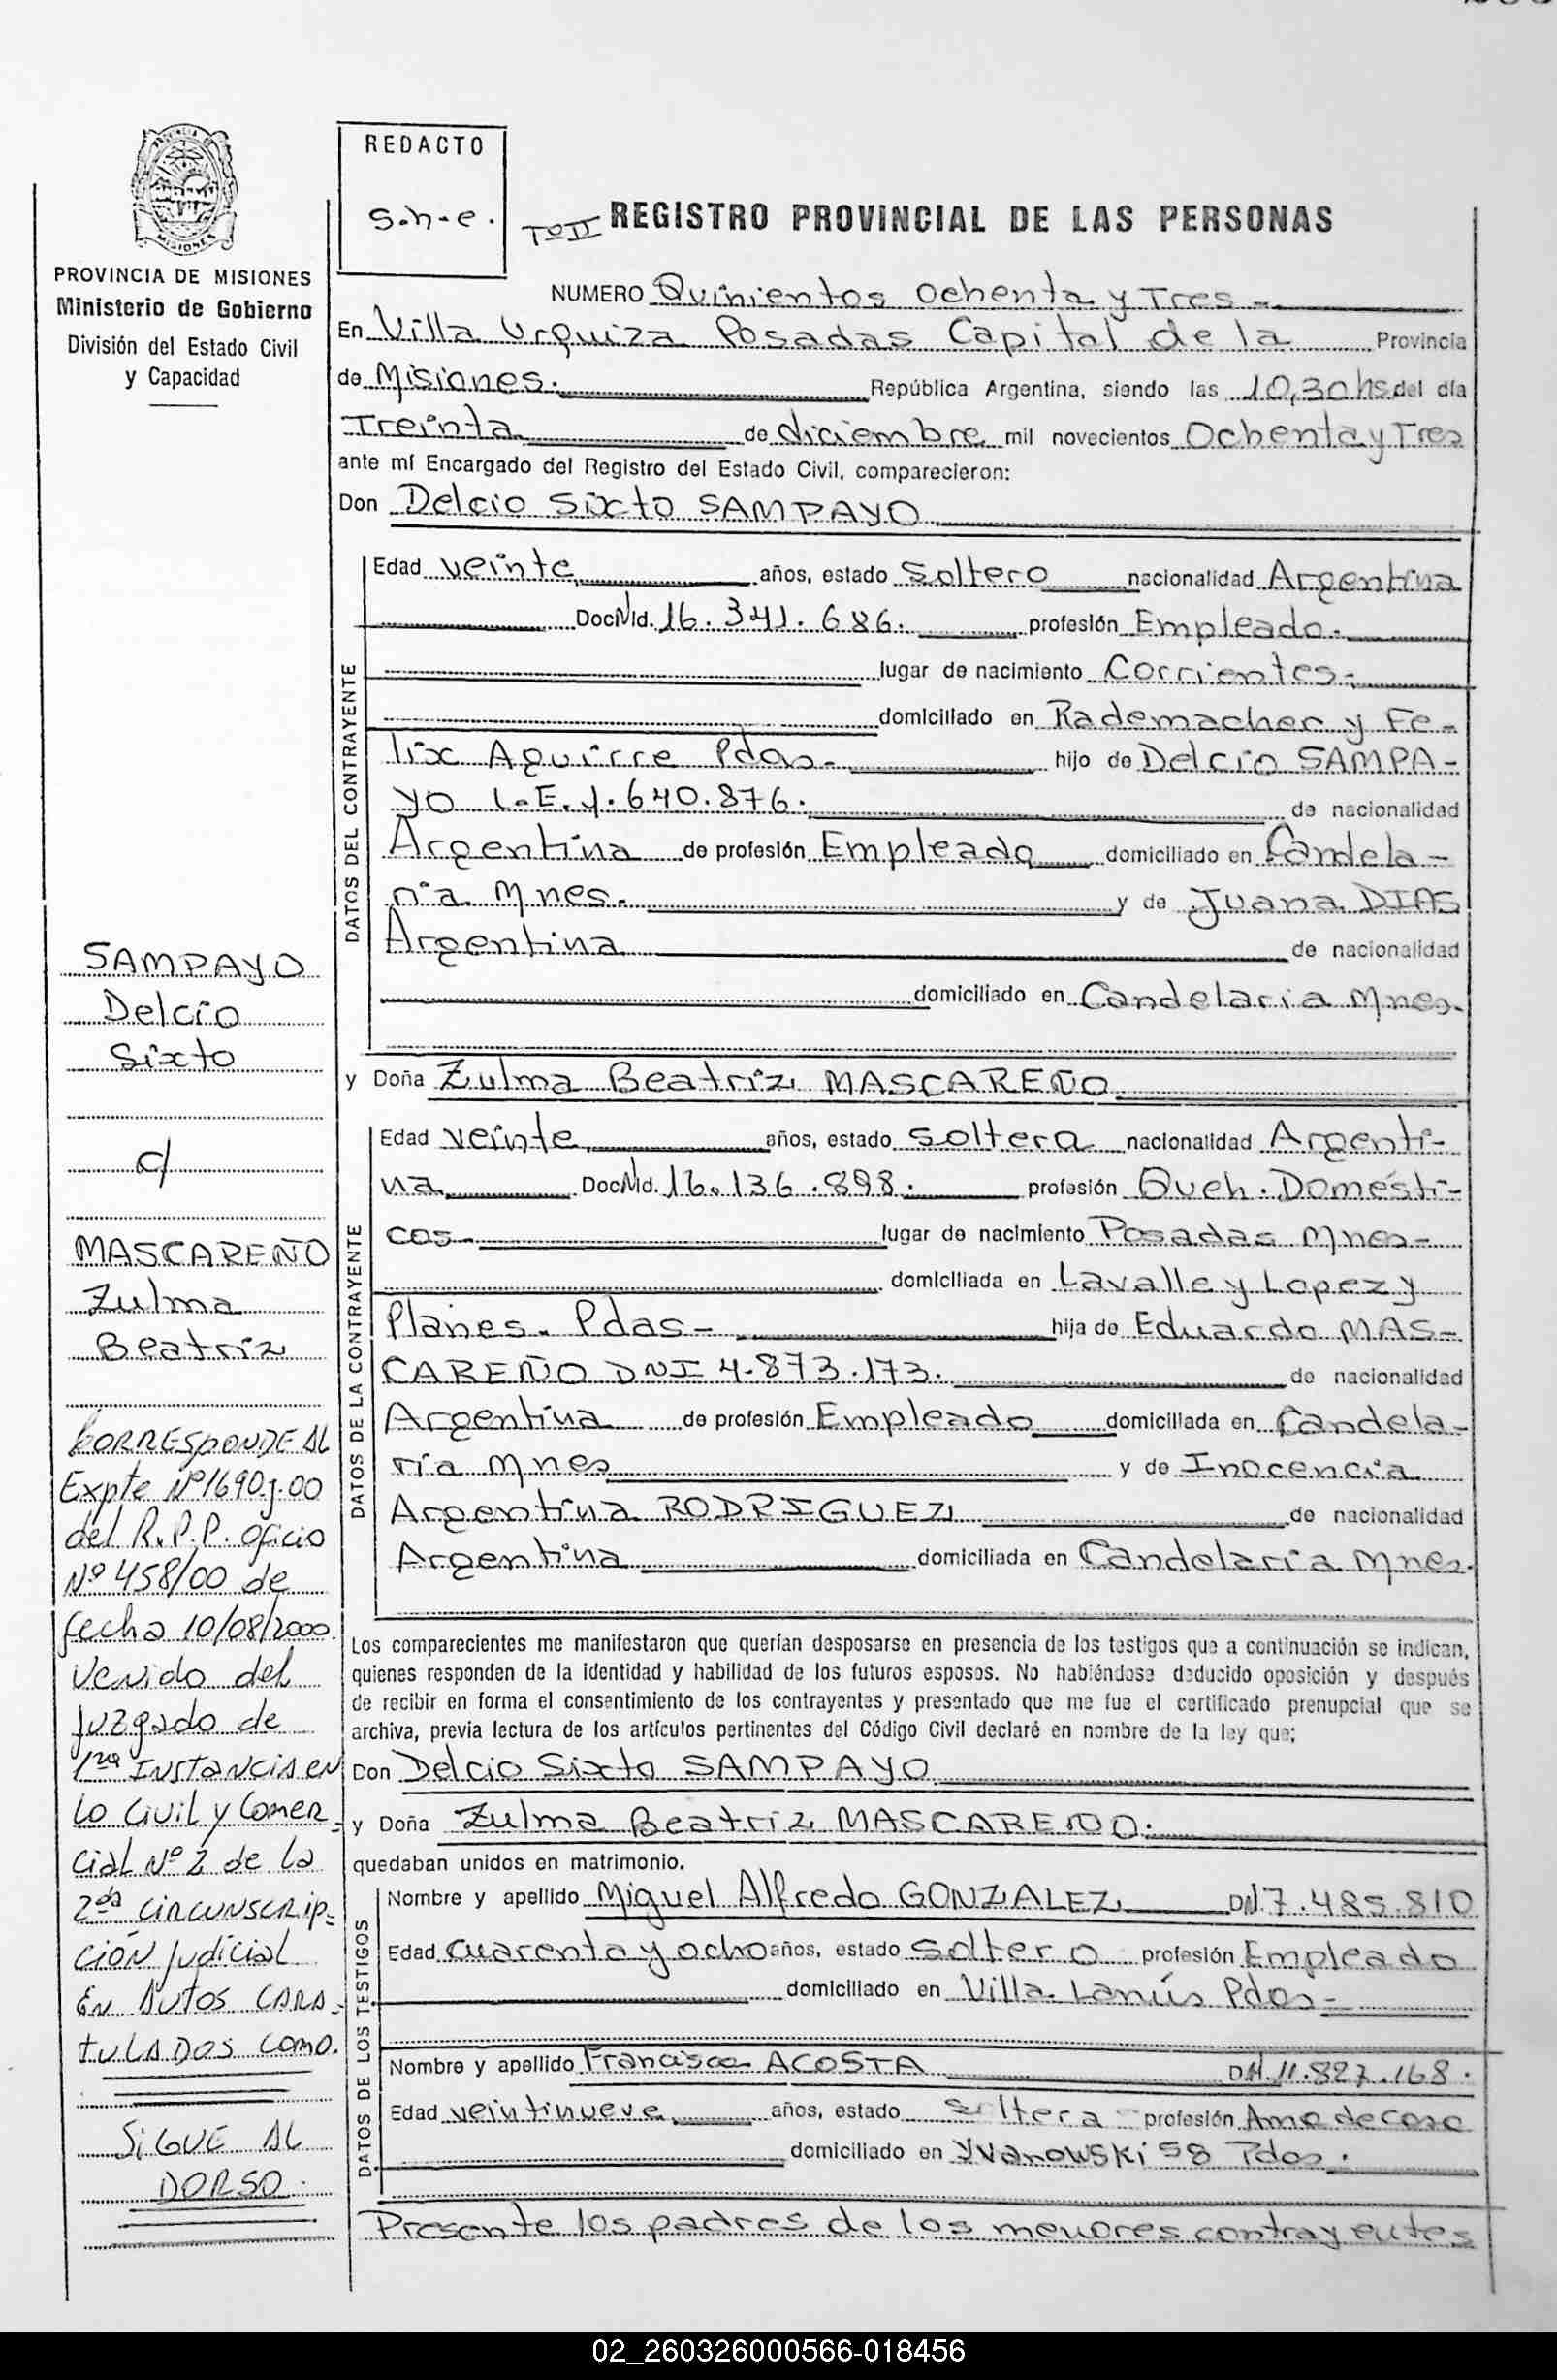 PROVINCIA DE MISIONES
Ministerio de Gobierno
División del Estado Civil
y Capacidad
REDACTO
S.h-e.
Tº II REGISTRO PROVINCIAL DE LAS PERSONAS
NUMERO Quinientos ochenta y Tres -
En Villa Urquiza Posadas Capital de la Provincia
de Misiones. República Argentina, siendo las 10,30 hs del día
Treinta de diciembre mil novecientos Ochenta y Tres
ante mí Encargado del Registro del Estado Civil, comparecieron:
Don Delcio Sixto SAMPAYO
DATOS DEL CONTRAYENTE
Edad veinte años, estado Soltero nacionalidad Argentina
Doc Nld. 16.341.686. profesión Empleado.
lugar de nacimiento Corrientes-
domiciliado en Rademacher y Fe-
lix Aguirre Pdas- hijo de Delcio SAMPA-
yo L.E. 1.640.876. de nacionalidad
Argentina de profesión Empleado domiciliado en Candela-
ria Mnes. y de Juana DIAS
Argentina de nacionalidad
domiciliado en Candelaria Mnes.
y Doña Zulma Beatriz MASCAREÑO
DATOS DE LA CONTRAYENTE
Edad veinte años, estado soltera nacionalidad Argenti-
na Doc Nld. 16.136.898. profesión Queh. Domésti-
cos- lugar de nacimiento Posadas Mnes-
domiciliada en Lavalle y Lopez y
Planes. Pdas- hija de Eduardo MAS-
CAREÑO DNI 4.873.173. de nacionalidad
Argentina de profesión Empleado domiciliada en Candela-
ria Mnes y de Inocencia
Argentina RODRIGUEZ de nacionalidad
Argentina domiciliada en Candelaria Mnes.
Los comparecientes me manifestaron que querían desposarse en presencia de los testigos que a continuación se indican,
quienes responden de la identidad y habilidad de los futuros esposos. No habiéndose deducido oposición y después
de recibir en forma el consentimiento de los contrayentes y presentado que me fue el certificado prenupcial que se
archiva, previa lectura de los artículos pertinentes del Código Civil declaré en nombre de la ley que;
Don Delcio Sixto SAMPAYO
y Doña Zulma Beatriz MASCAREÑO.
quedaban unidos en matrimonio.
DATOS DE LOS TESTIGOS
Nombre y apellido Miguel Alfredo GONZALEZ DNI 7.485.810
Edad cuarenta y ocho años, estado soltero profesión Empleado
domiciliado en Villa Lanús Pdas-
Nombre y apellido Francisca ACOSTA DNI. 11.827.168.
Edad veintinueve años, estado soltera profesión Ama de casa
domiciliado en Yvanowski 98 Pdas.
Presente los padres de los menores contrayentes
SAMPAYO
Delcio
Sixto
c/
MASCAREÑO
Zulma
Beatriz
CORRESPONDE AL
Expte Nº 1690-J-00
del R.P.P. oficio
Nº 458/00 de
fecha 10/08/2000.
Venido del
Juzgado de
1ra INSTANCIA EN
Lo Civil y Comer-
cial Nº 2 de La
2da CIRCUNSCRIP-
CIÓN Judicial
EN AUTOS CARA-
TULADOS COMO.
SIGUE AL
DORSO.
02_260326000566-018456